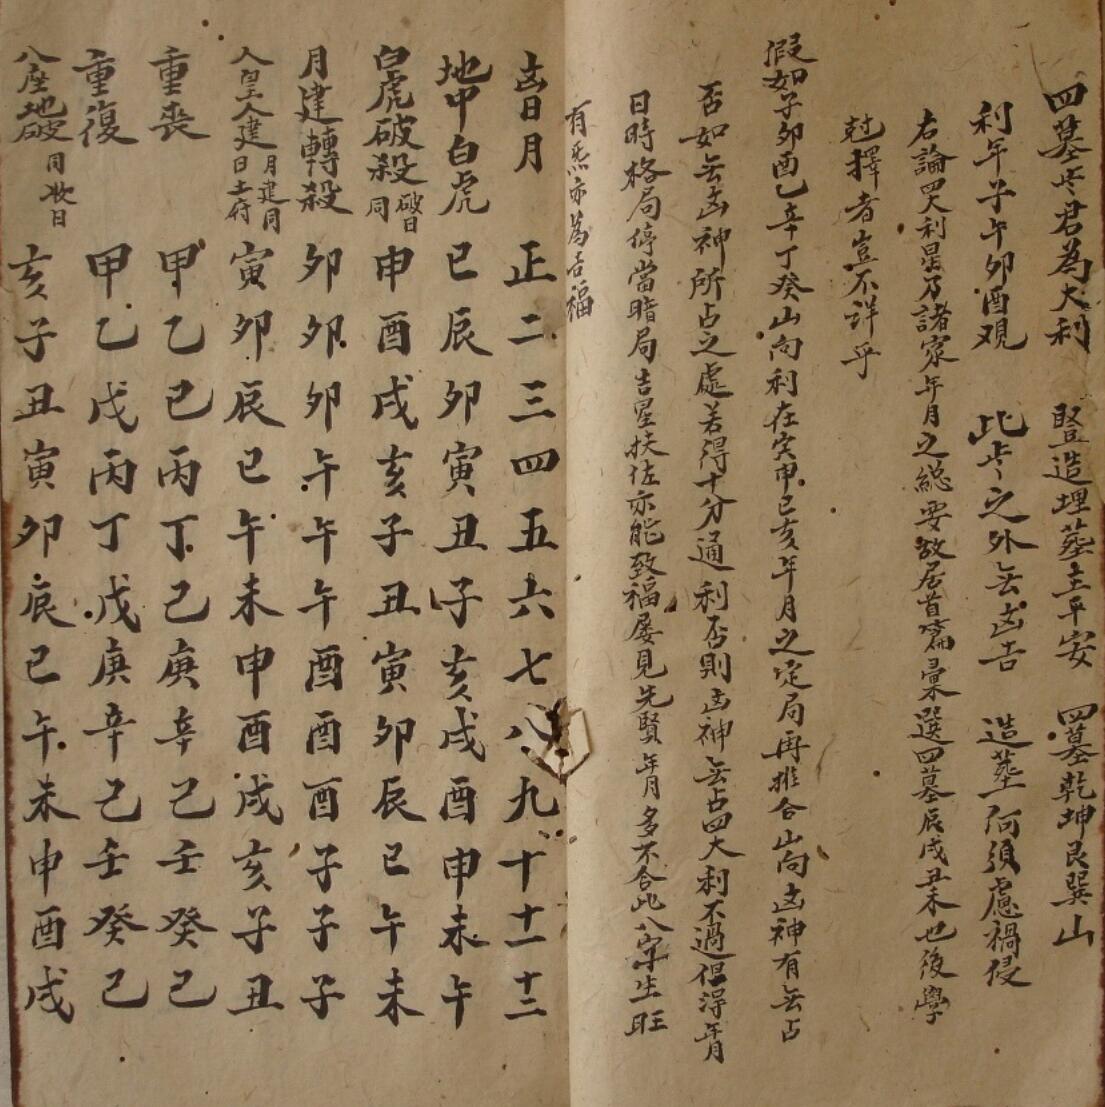 四墓山君為大利 豎造埋葬主平安 四墓乾坤艮巽山
利年子午卯酉艰 此山之外無凶吉 造葬何須慮禍侵
右論四大利星乃諸家年月之總要故居首篇彙選四墓辰戌丑未也後學
尅擇者豈不详乎
假如子卯酉乙辛丁癸山向利在寅申巳亥年月之定局再推合山向凶神有無占
否如無凶神所占之處若得十分通利否則凶神無占四大利不過但得年月
日時格局停當暗局吉星扶佐亦能致福屡見先賢年月多不合此八字生旺
有炁亦為吉福
凶日月 正二三四五六七八九十十一十二
地中白虎 巳辰卯寅丑子亥戌酉申未午
白虎破殺 破日同 申酉戌亥子丑寅卯辰巳午未
月建轉殺 卯卯卯午午午酉酉酉子子子
人皇人建 月建同日土府 寅卯辰巳午未申酉戌亥子丑
重喪 甲乙己丙丁己庚辛己壬癸己
重復 甲乙戊丙丁戊庚辛己壬癸己
八座地破 同收日 亥子丑寅卯辰巳午未申酉戌